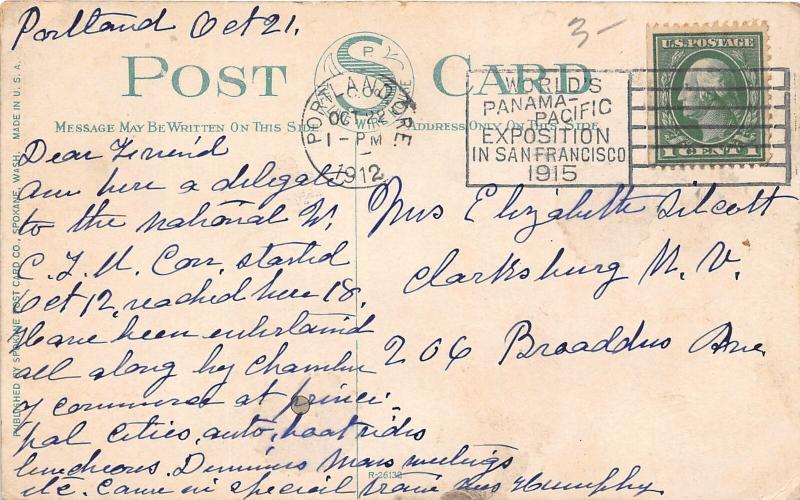 Portland Oct 21.
3-
POST CARD
S
MESSAGE MAY BE WRITTEN ON THIS SIDE
ADDRESS ONLY ON THIS SIDE
PORTLAND, ORE.
OCT 22
1-PM
1912
WORLD'S
PANAMA-
PACIFIC
EXPOSITION
IN SAN FRANCISCO
1915
U.S. POSTAGE
1 CENT 1
Dear Friend
am here a delegate
to the national W.
C. T. U. Con. started
Oct 12, reached here 18.
Have been entertaind
all along by Chamber
of commerce at princi-
pal cities, auto, boat rides
luncheons. Mass meetings
etc. Came in special train Humphy
Mrs Elizabeth Silcott
Clarksburg W. V.
206 Broaddus Ave
PUBLISHED BY SPOKANE POST CARD CO., SPOKANE, WASH. MADE IN U.S.A.
R-26132